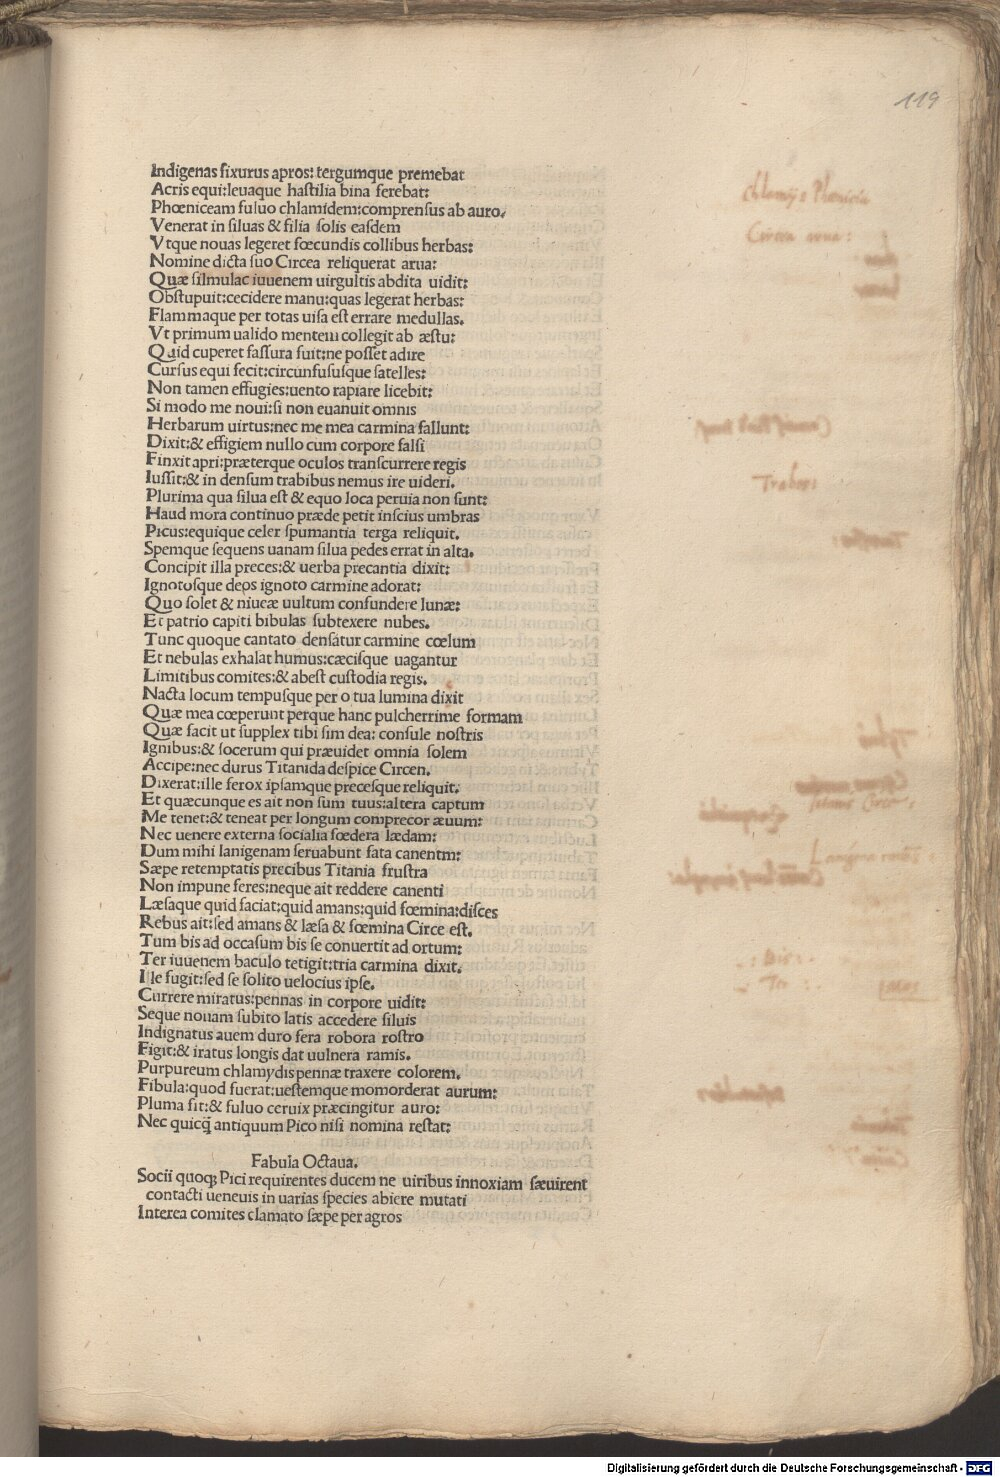 119
Indigenas fixurus apros: tergumque premebat
Acris equi:leuaque hastilia bina ferebat:
Phœniceam fuluo chlamidem:comprensus ab auro.
Venerat in siluas & filia solis easdem
Vtque nouas legeret fœcundis collibus herbas:
Nomine dicta suo Circea reliquerat arua:
Quæ silmulac iuuenem uirgultis abdita uidit:
Obstupuit:cecidere manu:quas legerat herbas:
Flammaque per totas uisa est errare medullas.
Vt primum ualido mentem collegit ab æstu:
Quid cuperet fassura fuit:ne posset adire
Cursus equi fecit:circunfususque satelles:
Non tamen effugies:uento rapiare licebit:
Si modo me noui:si non euanuit omnis
Herbarum uirtus:nec me mea carmina fallunt:
Dixit:& effigiem nullo cum corpore falsi
Finxit apri:præterque oculos transcurrere regis
Iussit:& in densum trabibus nemus ire uideri.
Plurima qua silua est & equo loca peruia non sunt:
Haud mora continuo præde petit inscius umbras
Picus:equique celer spumantia terga reliquit.
Spemque sequens uanam silua pedes errat in alta.
Concipit illa preces:& uerba precantia dixit:
Ignotosque deos ignoto carmine adorat:
Quo solet & niueæ uultum confundere lunæ:
Et patrio capiti bibulas subtexere nubes.
Tunc quoque cantato densatur carmine cœlum
Et nebulas exhalat humus:cæcisque uagantur
Limitibus comites:& abest custodia regis.
Nacta locum tempusque per o tua lumina dixit
Quæ mea cœperunt perque hanc pulcherrime formam
Quæ facit ut supplex tibi sim dea: consule nostris
Ignibus:& socerum qui præuidet omnia solem
Accipe:nec durus Titanida despice Circen.
Dixerat:ille ferox ipsamque precesque reliquit.
Et quæcunque es ait non sum tuus:altera captum
Me tenet:& teneat per longum comprecor æuum:
Nec uenere externa socialia fœdera lædam:
Dum mihi Ianigenam seruabunt fata canentm:
Sæpe retemptatis precibus Titania frustra
Non impune feres:neque ait reddere canenti
Læsaque quid faciat:quid amans:quid fœmina:disces
Rebus ait:sed amans & læsa & fœmina Circe est.
Tum bis ad occasum bis se conuertit ad ortum:
Ter iuuenem baculo tetigit:tria carmina dixit.
Ille fugit:sed se solito uelocius ipse.
Currere miratus:pennas in corpore uidit:
Seque nouam subito latis accedere siluis
Indignatus auem duro fera robora rostro
Figit:& iratus longis dat uulnera ramis.
Purpureum chlamydis pennæ traxere colorem.
Fibula:quod fuerat:uestemque momorderat aurum:
Pluma fit:& fuluo ceruix præcingitur auro:
Nec quicq̃ antiquum Pico nisi nomina restat:
Fabula Octaua.
Socii quoq; Pici requirentes ducem ne uiribus innoxiam sæuirent
contacti ueneuis in uarias species abiere mutati
Interea comites clamato sæpe per agros
chlamys Phœnicia
Circea arua:
Trabes:
: Bis :
Ter :
Digitalisierung gefördert durch die Deutsche Forschungsgemeinschaft - DFG